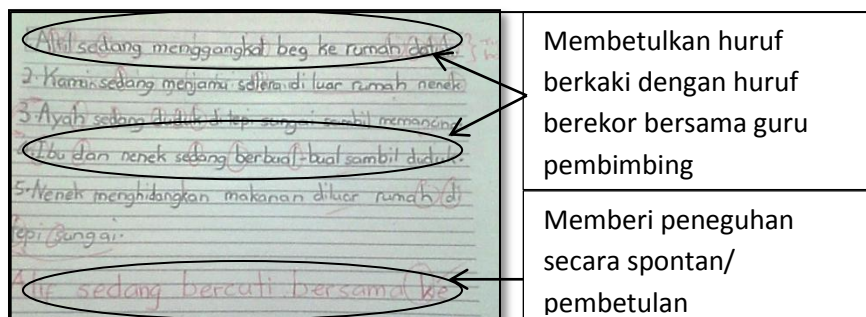 Alif sedang menggangkat beg ke rumah datuk.
2. Kami sedang menjamu selera di luar rumah nenek
3. Ayah sedang duduk di tepi sungai sambil memancing
Ibu dan nenek sedang berbual-bual sambil duduk.
5. Nenek menghidangkan makanan diluar rumah di
tepi sungai.
Alif sedang bercuti bersama ke
Membetulkan huruf
berkaki dengan huruf
berekor bersama guru
pembimbing
Memberi peneguhan
secara spontan/
pembetulan